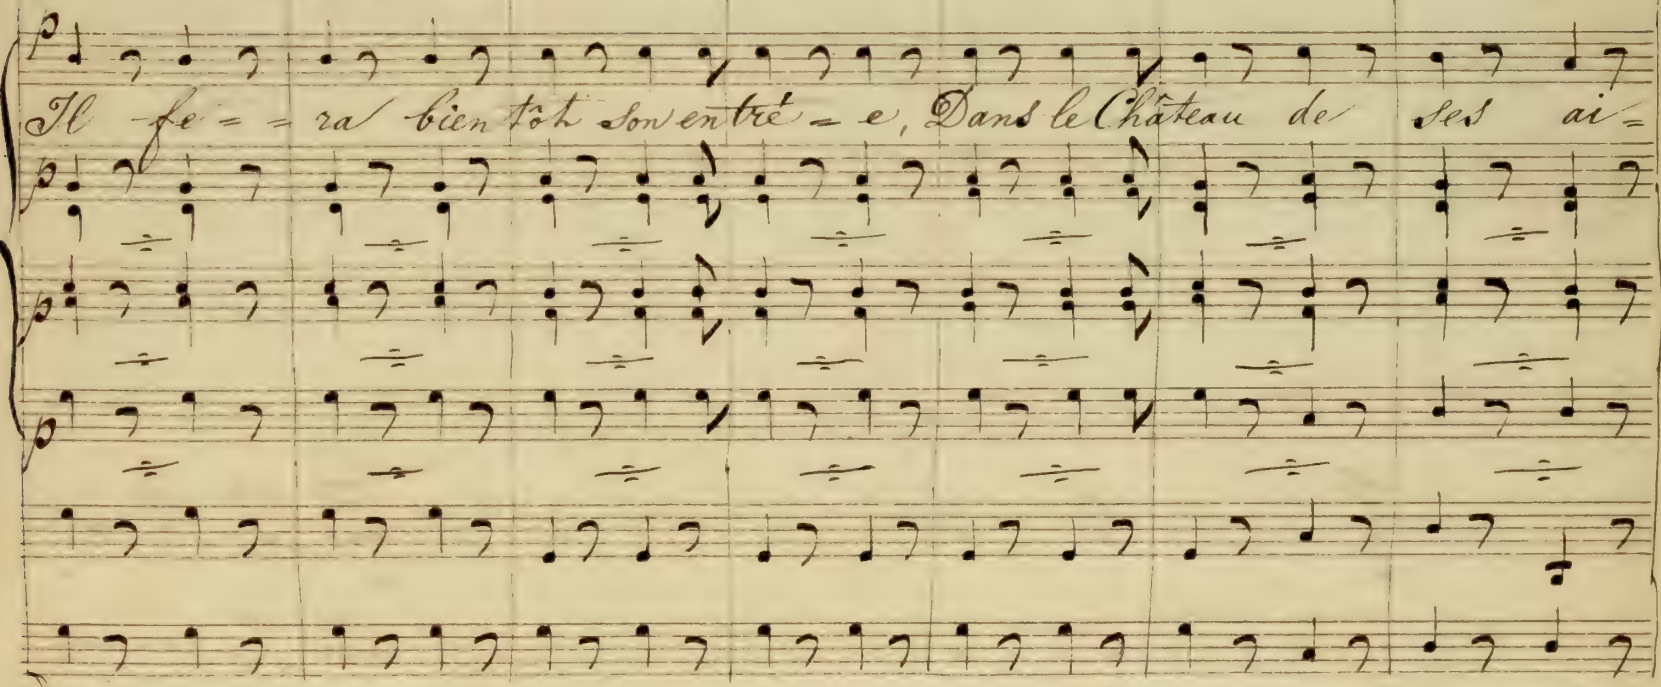 p
Il fe = = ra bien tôt son entré = e, Dans le Château de ses ai =
p
p
p